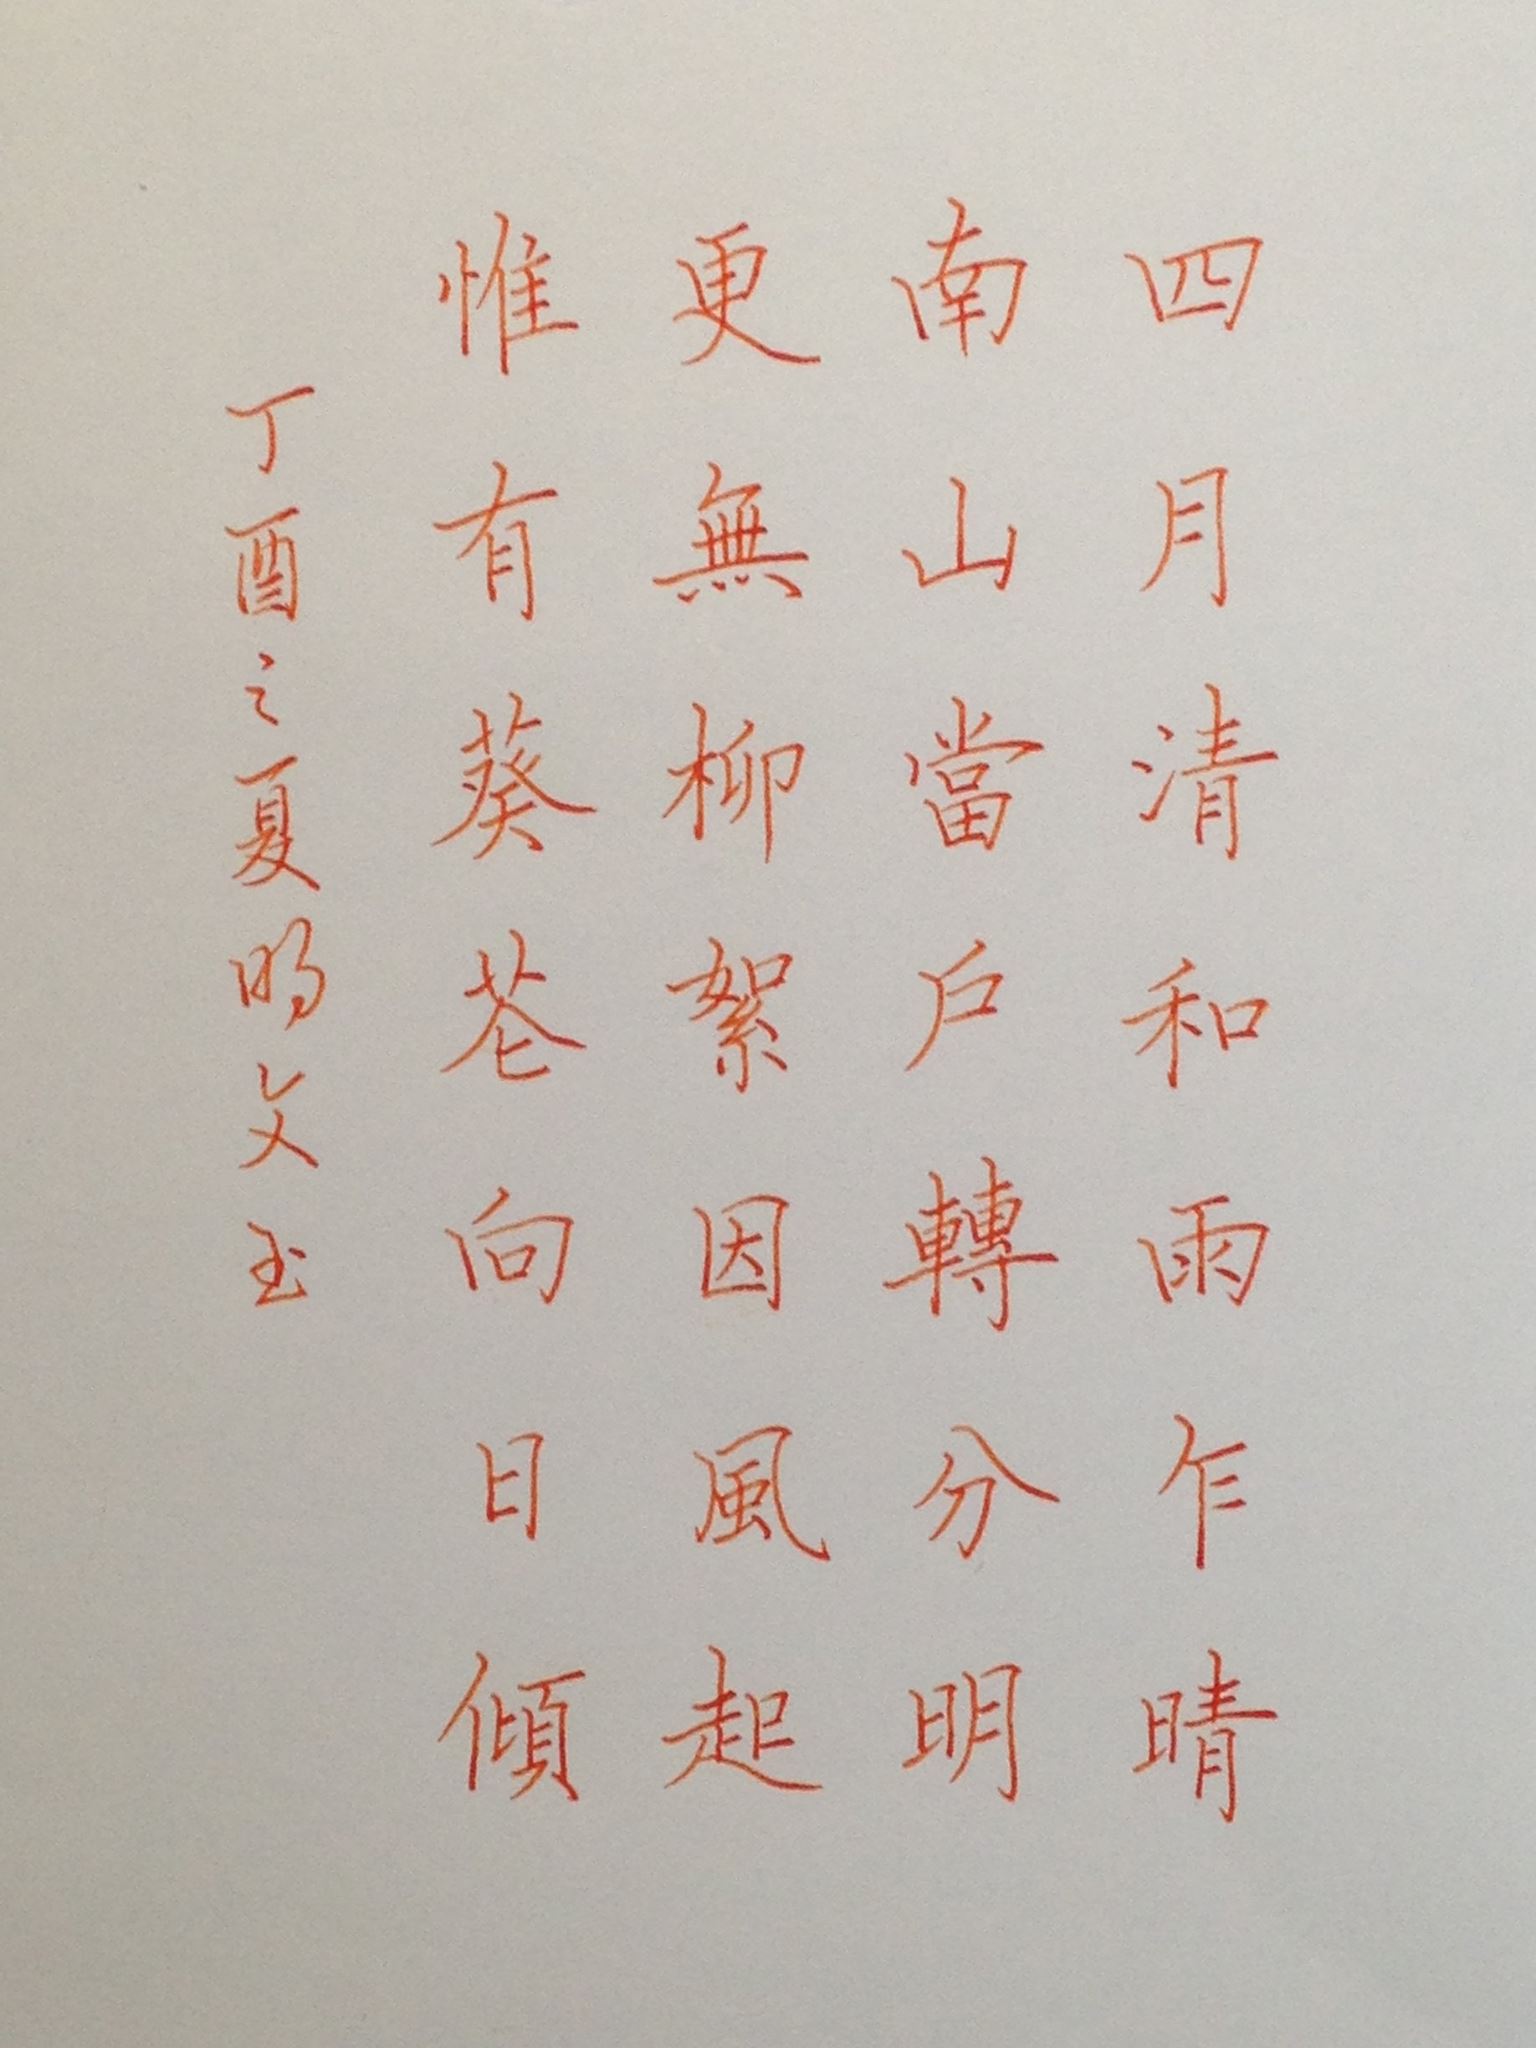 四月清和雨乍晴
南山當戶轉分明
更無柳絮因風起
惟有葵花向日傾
丁酉之夏明文玉